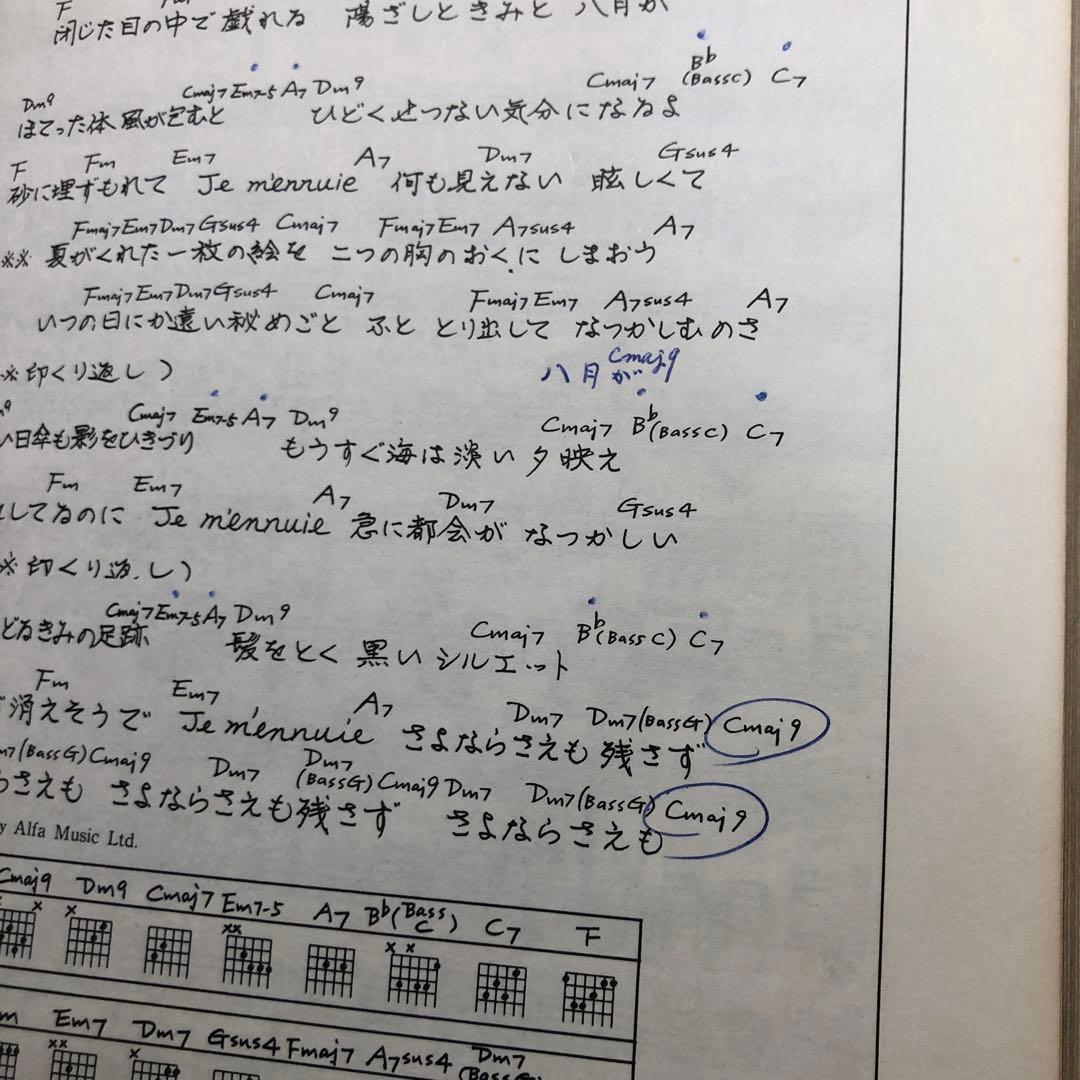 F
閉じた目の中で戯れる 陽ざしときみと 八月が
Dm9 Cmaj7 Em7-5 A7 Dm9 Cmaj7 B♭(Bass C) C7
ほてった体 風が包むと ひどくせつない気分になるよ
F Fm Em7 A7 Dm7 Gsus4
砂に埋ずもれて Je m'ennuie 何も見えない 眩しくて
Fmaj7 Em7 Dm7 Gsus4 Cmaj7 Fmaj7 Em7 A7sus4 A7
※※ 夏がくれた一枚の絵を 二つの胸のおくに しまおう
Fmaj7 Em7 Dm7 Gsus4 Cmaj7 Fmaj7 Em7 A7sus4 A7
いつの日にか遠い秘めごと ふと とり出して なつかしむのさ
※印くり返し) 八月が Cmaj9
Cmaj7 Em7-5 A7 Dm9 Cmaj7 B♭(Bass C) C7
い日傘も影をひきづり もうすぐ海は淡い夕映え
Fm Em7 A7 Dm7 Gsus4
してるのに Je m'ennuie 急に都会が なつかしい
※印くり返し)
Cmaj7 Em7-5 A7 Dm9 Cmaj7 B♭(Bass C) C7
どるきみの足跡 髪をとく 黒い シルエット
Fm Em7 A7 Dm7 Dm7(BassG) Cmaj9
消えそうで Je m'ennuie さよならさえも 残さず
m7(BassG) Cmaj9 Dm7 Dm7(BassG) Cmaj9 Dm7 Dm7(BassG) Cmaj9
らさえも さよならさえも残さず さよならさえも
y Alfa Music Ltd.
Cmaj9 Dm9 Cmaj7 Em7-5 A7 B♭(Bass C) C7 F
m Em7 Dm7 Gsus4 Fmaj7 A7sus4 Dm7(BassG)